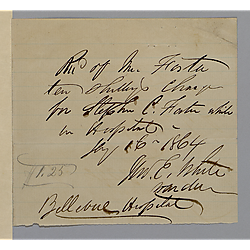 Recd of Mr. Foster
ten shillings charge
for Stephen C. Foster while
in Hospital
Jany 16 - 1864
Wm. E. White
Warden
$1.25
Bellevue Hospital